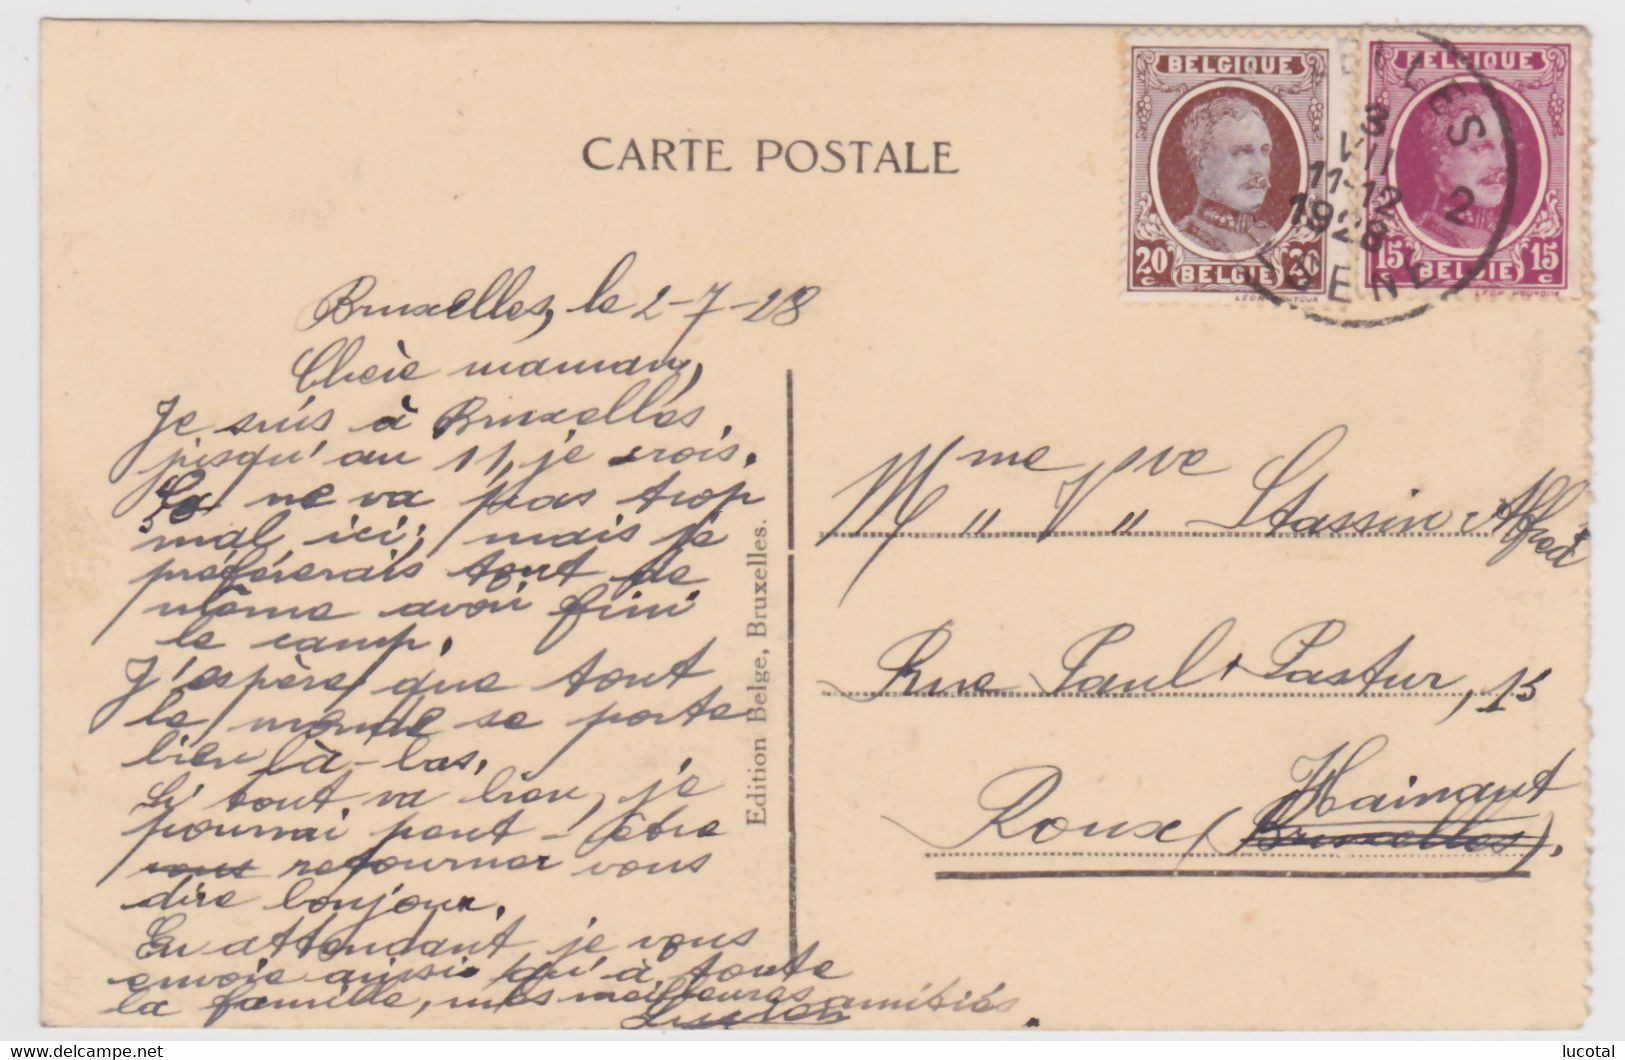 CARTE POSTALE
BELGIQUE
20 c BELGIE 20 c
BELGIQUE
15 c BELGIE 15 c
3
VII
11-12
1928
2
Bruxelles, le 2-7-28
Chère maman,
Je suis à Bruxelles
jusqu'au 11, je crois.
Ça ne va pas trop
mal ici; mais je
préférerais tout de
même avoir fini
le camp.
J'espère que tout
le monde se porte
bien là-bas.
Si tout va bien, je
pourrai peut-être
vous retourner vous
dire bonjour.
En attendant, je vous
envoie ainsi qu'à toute
la famille, mes meilleures amitiés.
Edition Belge, Bruxelles.
Mme " Vve " Stassin Alfred
Rue Paul Pastur, 15
Hainaut
Roux (Bruxelles).
lucotal